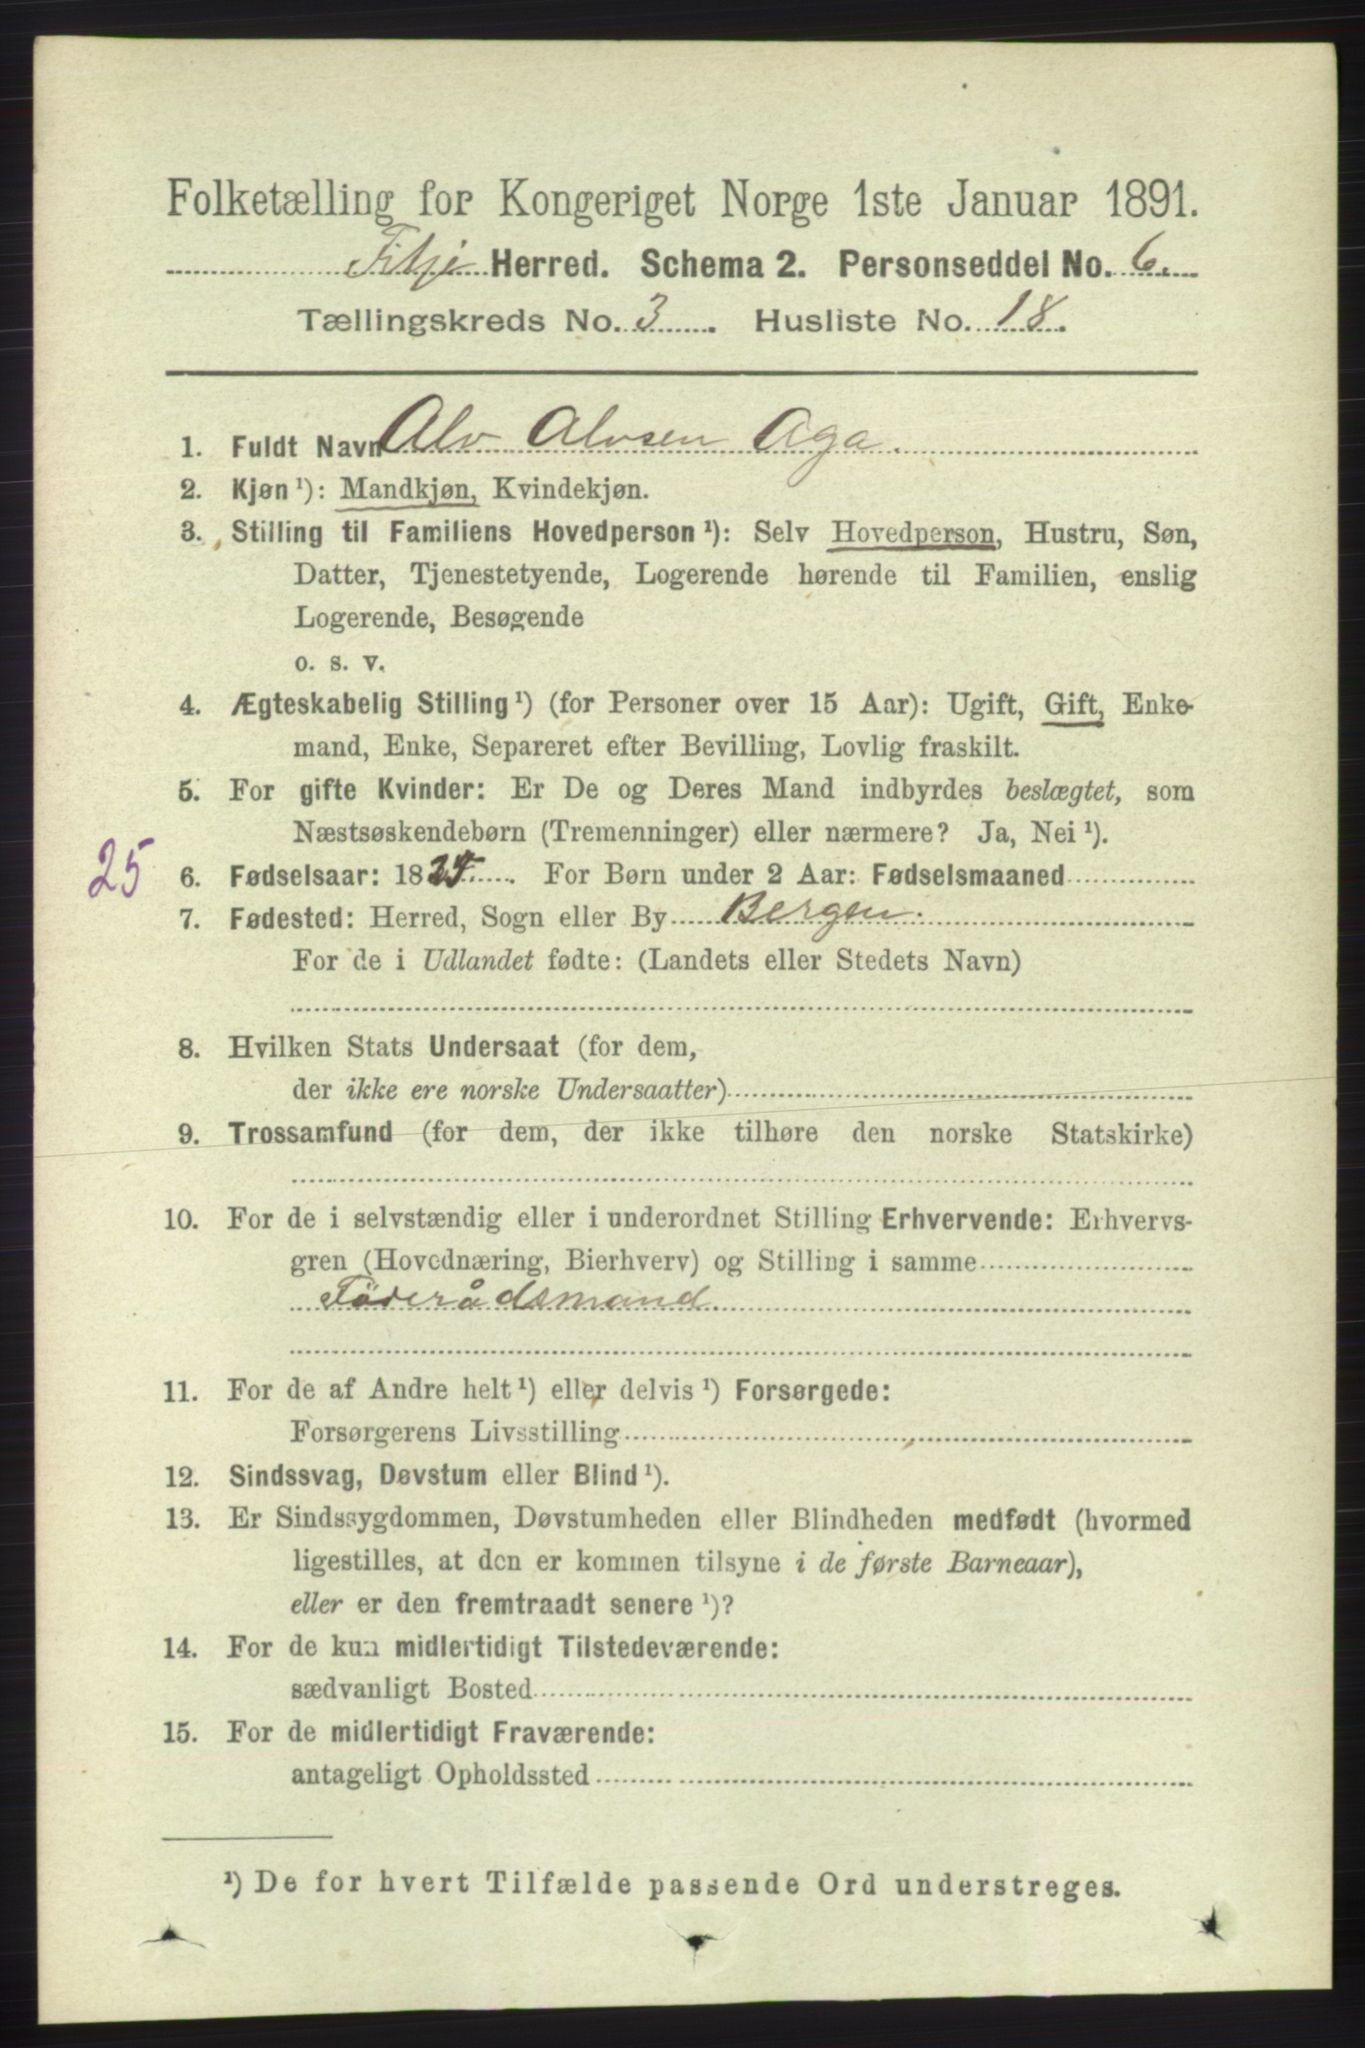 Folketælling for Kongeriget Norge 1ste Januar 1891.
Fitje Herred. Schema 2. Personseddel No. 6.
Tællingskreds No. 3. Husliste No. 18.
1. Fuldt Navn Alv Alvsen Aga.
2. Kjøn ¹): Mandkjøn, Kvindekjøn.
3. Stilling til Familiens Hovedperson ¹): Selv Hovedperson, Hustru, Søn,
Datter, Tjenestetyende, Logerende hørende til Familien, enslig
Logerende, Besøgende
o. s. v.
4. Ægteskabelig Stilling ¹) (for Personer over 15 Aar): Ugift, Gift, Enke-
mand, Enke, Separeret efter Bevilling, Lovlig fraskilt.
5. For gifte Kvinder: Er De og Deres Mand indbyrdes beslægtet, som
Næstsøskendebørn (Tremenninger) eller nærmere? Ja, Nei ¹).
25 6. Fødselsaar: 1825. For Børn under 2 Aar: Fødselsmaaned
7. Fødested: Herred, Sogn eller By Bergen.
For de i Udlandet fødte: (Landets eller Stedets Navn)
8. Hvilken Stats Undersaat (for dem,
der ikke ere norske Undersaatter)
9. Trossamfund (for dem, der ikke tilhøre den norske Statskirke)
10. For de i selvstændig eller i underordnet Stilling Erhvervende: Erhvervs-
gren (Hovednæring, Bierhverv) og Stilling i samme
Föderådsmand.
11. For de af Andre helt ¹) eller delvis ¹) Forsørgede:
Forsørgerens Livsstilling
12. Sindssvag, Døvstum eller Blind ¹).
13. Er Sindssygdommen, Døvstumheden eller Blindheden medfødt (hvormed
ligestilles, at den er kommen tilsyne i de første Barneaar),
eller er den fremtraadt senere ¹)?
14. For de kun midlertidigt Tilstedeværende:
sædvanligt Bosted
15. For de midlertidigt Fraværende:
antageligt Opholdssted
¹) De for hvert Tilfælde passende Ord understreges.